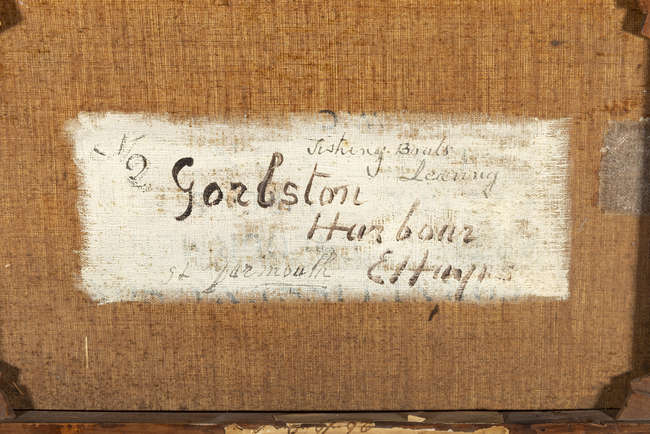 No 2
Fishing Boats
Leaving
Gorlston
Harbour
gt Yarmouth
E Hayes